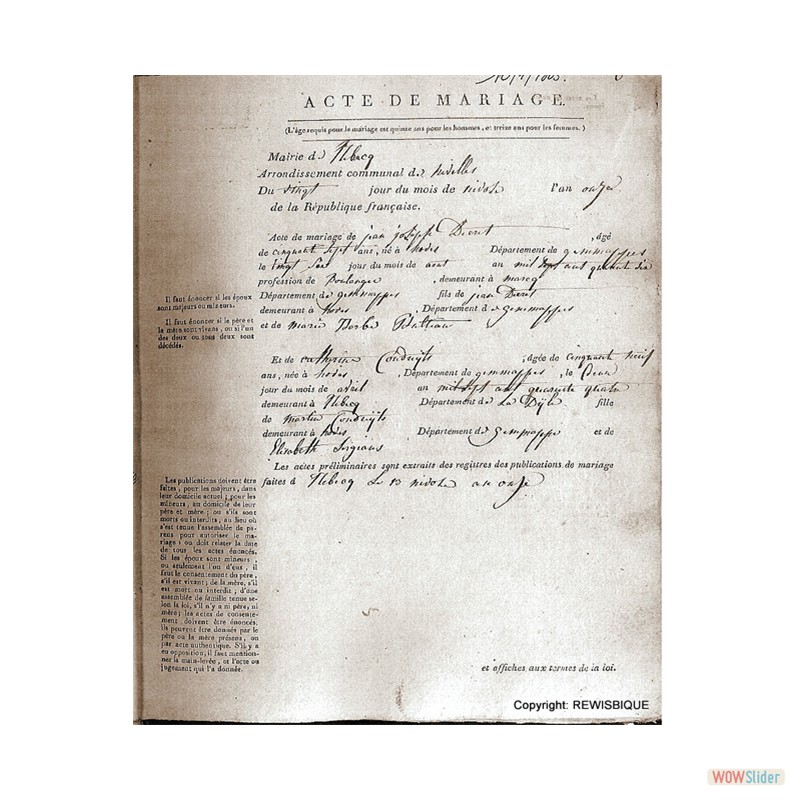 ACTE DE MARIAGE.
(L'âge requis pour le mariage est quinze ans pour les hommes, et treize ans pour les femmes.)
Mairie de Rebecq
Arrondissement communal de nivelles
Du vingt jour du mois de nivose l'an onze
de la République française.
Acte de mariage de jean joseph , âgé
de cinquante sept ans, né à hoves Département de gemmappes
le vingt jour du mois de aout an mil sept cent quarante
profession de Boulanger , demeurant à marcq
Département de gemmappes fils de jean
demeurant à hoves , Département de gemmappes
et de marie
Et de catherine , âgée de cinquante neuf
ans, née à hoves , Département de gemmappes , le deux
jour du mois de avril an mil sept cent quarante quatre
demeurant à Rebecq Département de La Dyle fille
de martin
demeurant à hoves , Département de gemmappe et de
Elisabeth
Les actes préliminaires sont extraits des registres des publications de mariage
faites à Rebecq Le 13 nivose an onze
Il faut énoncer si les époux
sont majeurs ou mineurs.
Il faut énoncer si le père et
la mère sont vivans, ou si l'un
des deux ou tous deux sont
décédés.
Les publications doivent être
faites, pour les majeurs, dans
leur domicile actuel; pour les
mineurs, au domicile de leur
père et mère; ou s'ils sont
morts ou interdits, au lieu où
s'est tenue l'assemblée de pa-
rens pour autoriser le ma-
riage: on doit relater la date
de tous les actes énoncés.
Si les époux sont mineurs,
ou seulement l'un d'eux, il
faut le consentement du père,
s'il est vivant; de la mère, s'il
est mort ou interdit; d'une
assemblée de famille tenue se-
lon la loi, s'il n'y a ni père, ni
mère; les actes de consente-
ment doivent être énoncés.
Ils peuvent être donnés par le
père ou la mère présens, ou
par acte authentique. S'il y a
eu opposition, il faut mention-
ner la main-levée, et l'acte ou
jugement qui l'a donnée.
et affiches aux termes de la loi.
Copyright: REWISBIQUE
WOWSlider